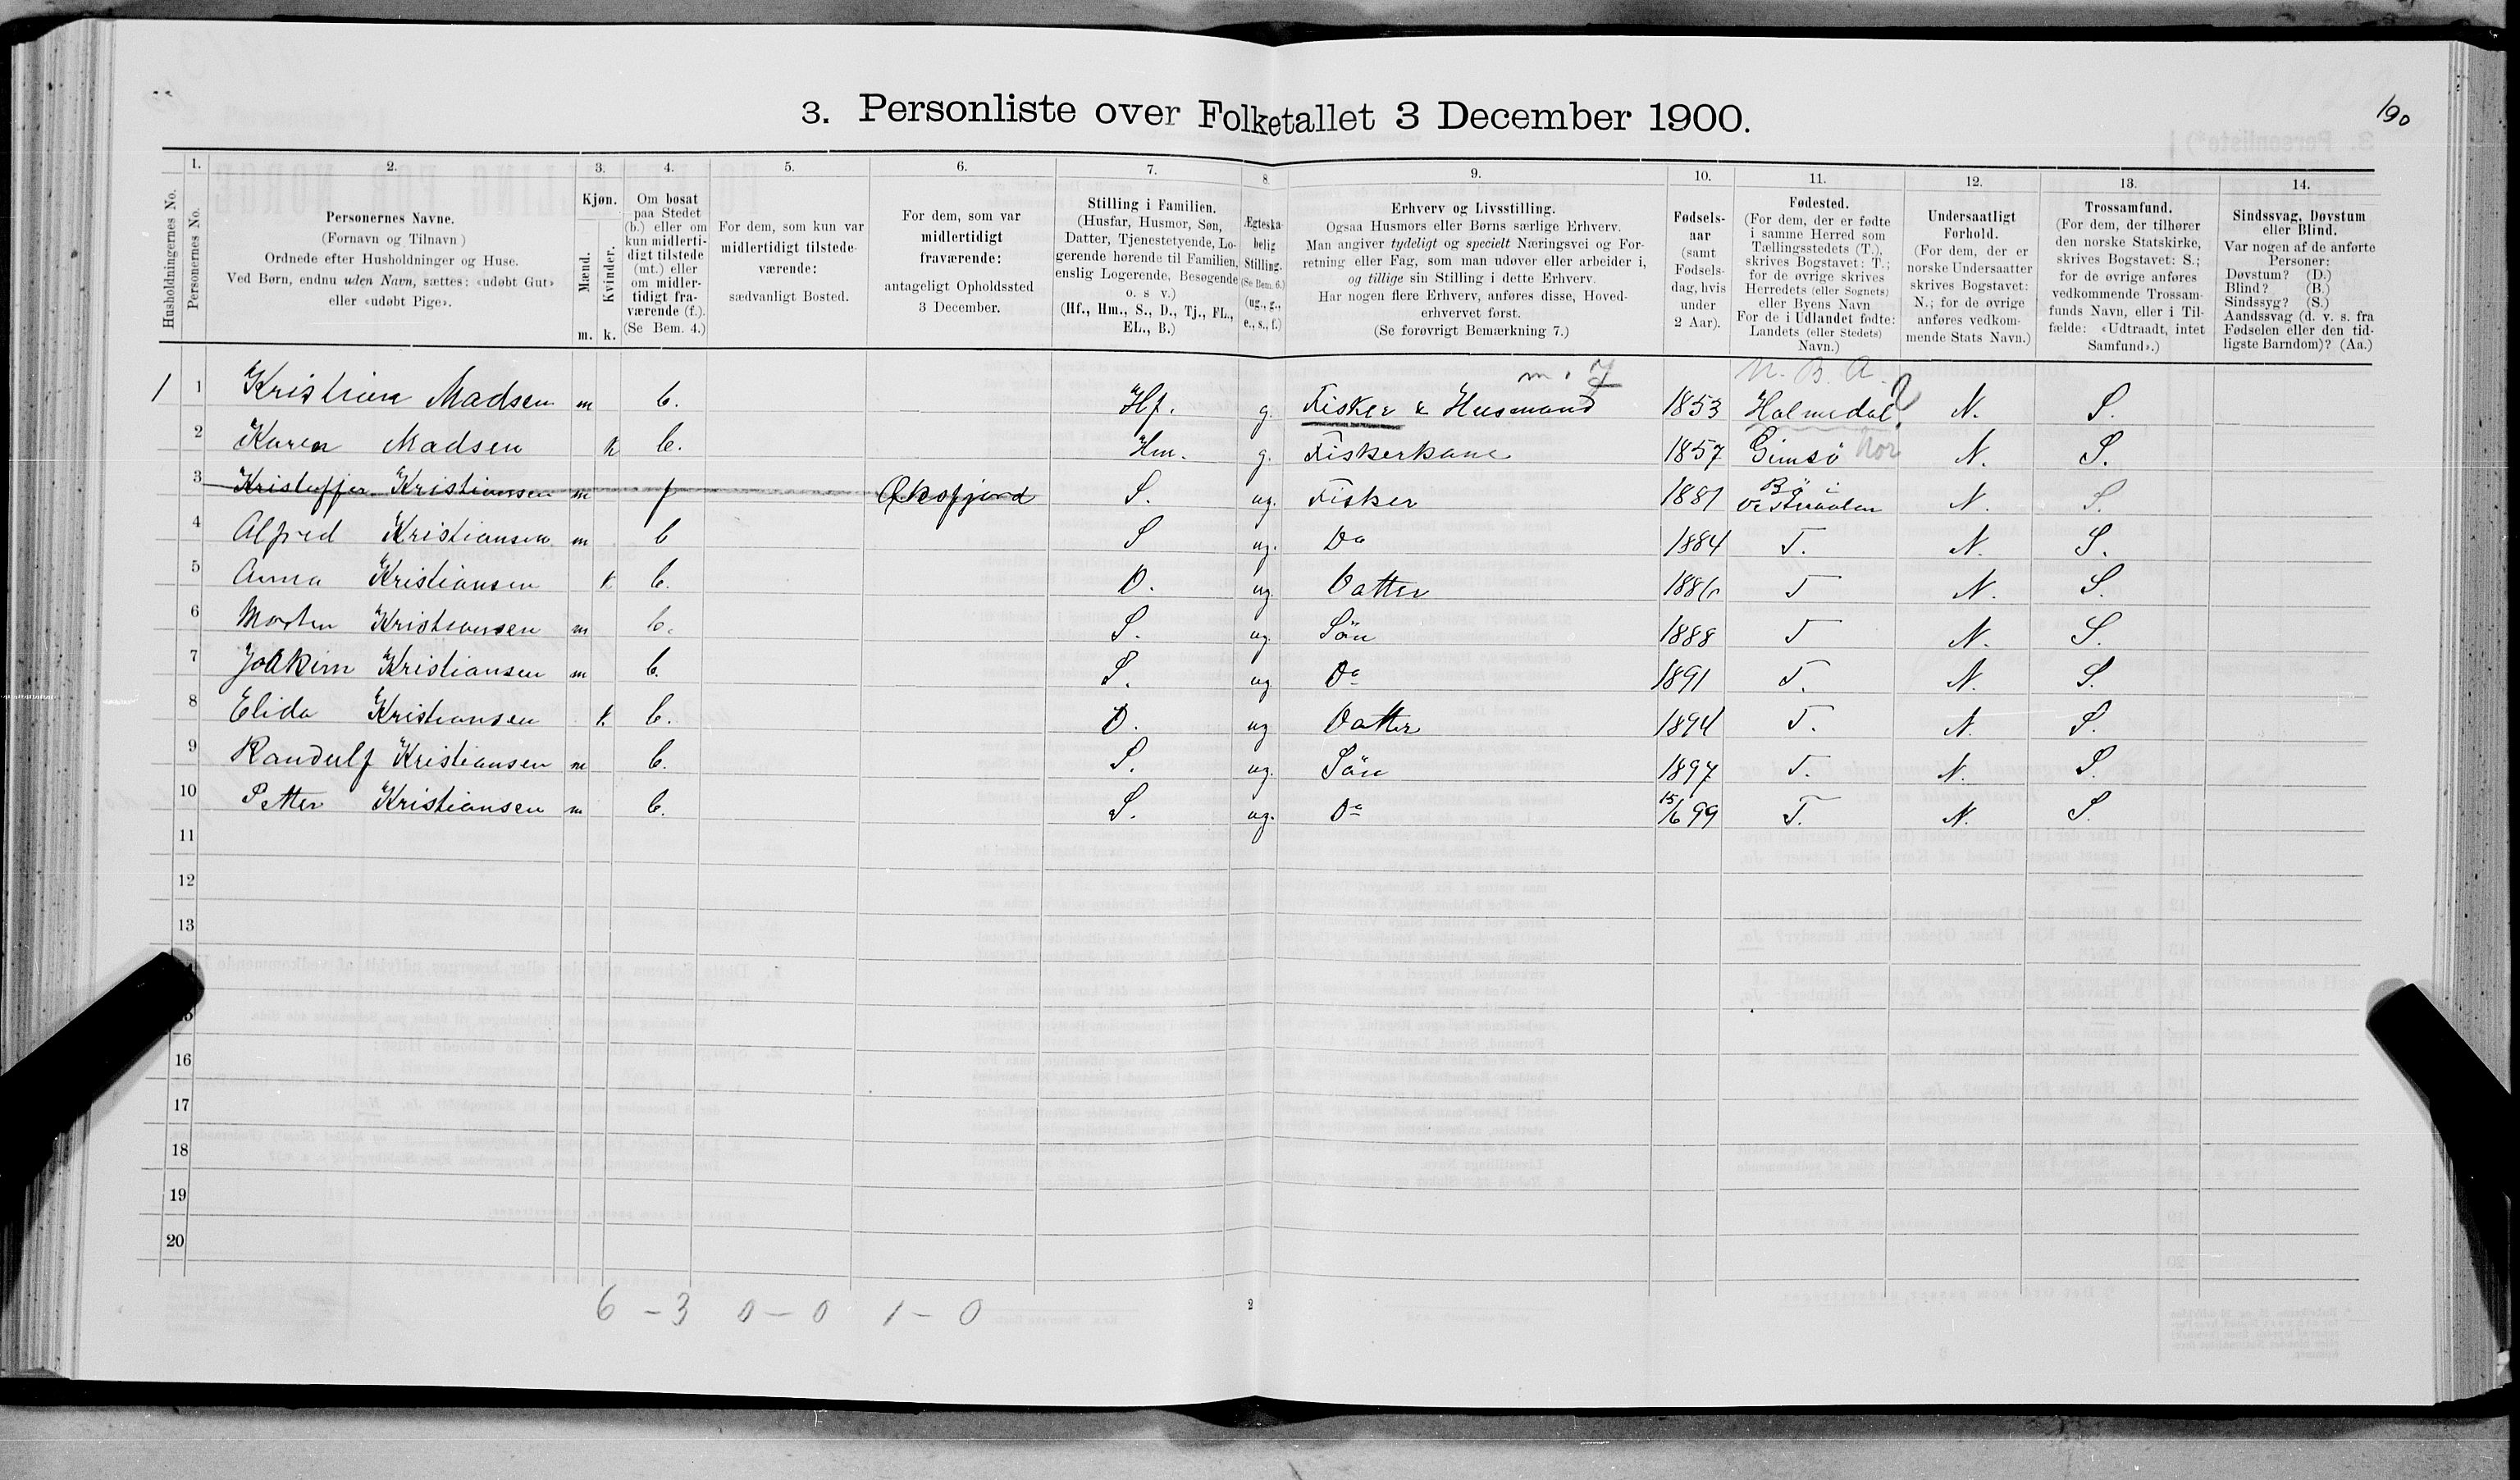 190
3. Personliste over Folketallet 3 December 1900.
1. 2. 3. 4. 5. 6. 7. 8. 9. 10. 11. 12. 13. 14.
Husholdningernes No.
Personernes No.
Personernes Navne.
(Fornavn og Tilnavn)
Ordnede efter Husholdninger og Huse.
Ved Børn, endnu uden Navn, sættes: «udøbt Gut»
eller «udøbt Pige».
Kjøn.
Mænd.
Kvinder.
m. k.
Om bosat
paa Stedet
(b.) eller om
kun midlerti-
digt tilstede
(mt.) eller
om midler-
tidigt fra-
værende (f.).
(Se Bem. 4.)
For dem, som kun var
midlertidigt tilstede-
værende:
sædvanligt Bosted.
For dem, som var
midlertidigt
fraværende:
antageligt Opholdssted
3 December.
Stilling i Familien.
(Husfar, Husmor, Søn,
Datter, Tjenestetyende, Lo-
gerende hørende til Familien,
enslig Logerende, Besøgende
o. s v.)
(Hf., Hm., S., D., Tj., FL.,
EL., B.)
Ægteska-
belig
Stilling.
(Se Bem. 6.)
(ug., g.,
e., s., f.)
Erhverv og Livsstilling.
Ogsaa Husmors eller Børns særlige Erhverv.
Man angiver tydeligt og specielt Næringsvei og For-
retning eller Fag, som man udøver eller arbeider i,
og tillige sin Stilling i dette Erhverv.
Har nogen flere Erhverv, anføres disse, Hoved-
erhvervet først.
(Se forøvrigt Bemærkning 7.)
Fødsels-
aar
(samt
Fødsels-
dag, hvis
under
2 Aar).
Fødested.
(For dem, der er fødte
i samme Herred som
Tællingsstedets (T.),
skrives Bogstavet: T.;
for de øvrige skrives
Herredets (eller Sognets)
eller Byens Navn
For de i Udlandet fødte:
Landets (eller Stedets)
Navn.)
Undersaatligt
Forhold.
(For dem, der er
norske Undersaatter
skrives Bogstavet:
N.; for de øvrige
anføres vedkom-
mende Stats Navn.)
Trossamfund.
(For dem, der tilhører
den norske Statskirke,
skrives Bogstavet: S.;
for de øvrige anføres
vedkommende Trossam-
funds Navn, eller i Til-
fælde: «Udtraadt, intet
Samfund».)
Sindssvag, Døvstum
eller Blind.
Var nogen af de anførte
Personer:
Døvstum? (D.)
Blind? (B.)
Sindssyg? (S.)
Aandssvag (d. v. s. fra
Fødselen eller den tid-
ligste Barndom)? (Aa.)
N. B. A.
1 1 Kristian Madsen m b. Hf. g. Fisker & Husmand 1853 Holmedal? N. S.
2 Karen Madsen k b. Hm. g. Fiskerkone 1857 Gimsö Nor N. S.
3 Kristoffer Kristiansen m f Öksfjord S. ug. Fisker 1881 Bö i Vesteraalen N. S.
4 Alfred Kristiansen m b S ug. Do 1884 T. N. S.
5 Anna Kristiansen k b. D. ug Datter 1886 T N. S.
6 Morten Kristiansen m b. S. ug Sön 1888 T N. S.
7 Joakim Kristiansen m b. S. ug Do 1891 T. N. S.
8 Elida Kristiansen k. b. D. ug Datter 1894 T. N. S.
9 Randulf Kristiansen m b. S. ug. Sön 1897 T. N. S.
10 Petter Kristiansen m b. S. ug. Do 15/6 99 T. N. S.
11
12
13
16
17
18
19
20
6 - 3 0 - 0 1 - 0
2